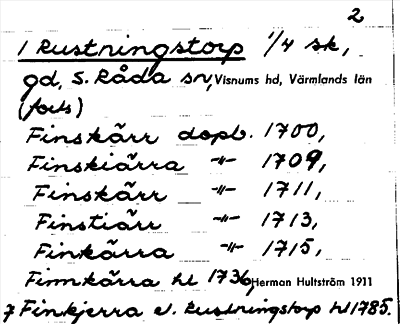 2
1 Rustningstorp 1/4 sk,
gd, S. Råda sn, Visnums hd, Värmlands län
(forts)
Finskärr dopb. 1700,
Finskiärra -"- 1709,
Finskärr -"- 1711,
Finstiärr -"- 1713,
Finkärra -"- 1715,
Finnkärra hl 1736, Herman Hultström 1911
7 Finkjerra el. Rustningstorp hl 1785.